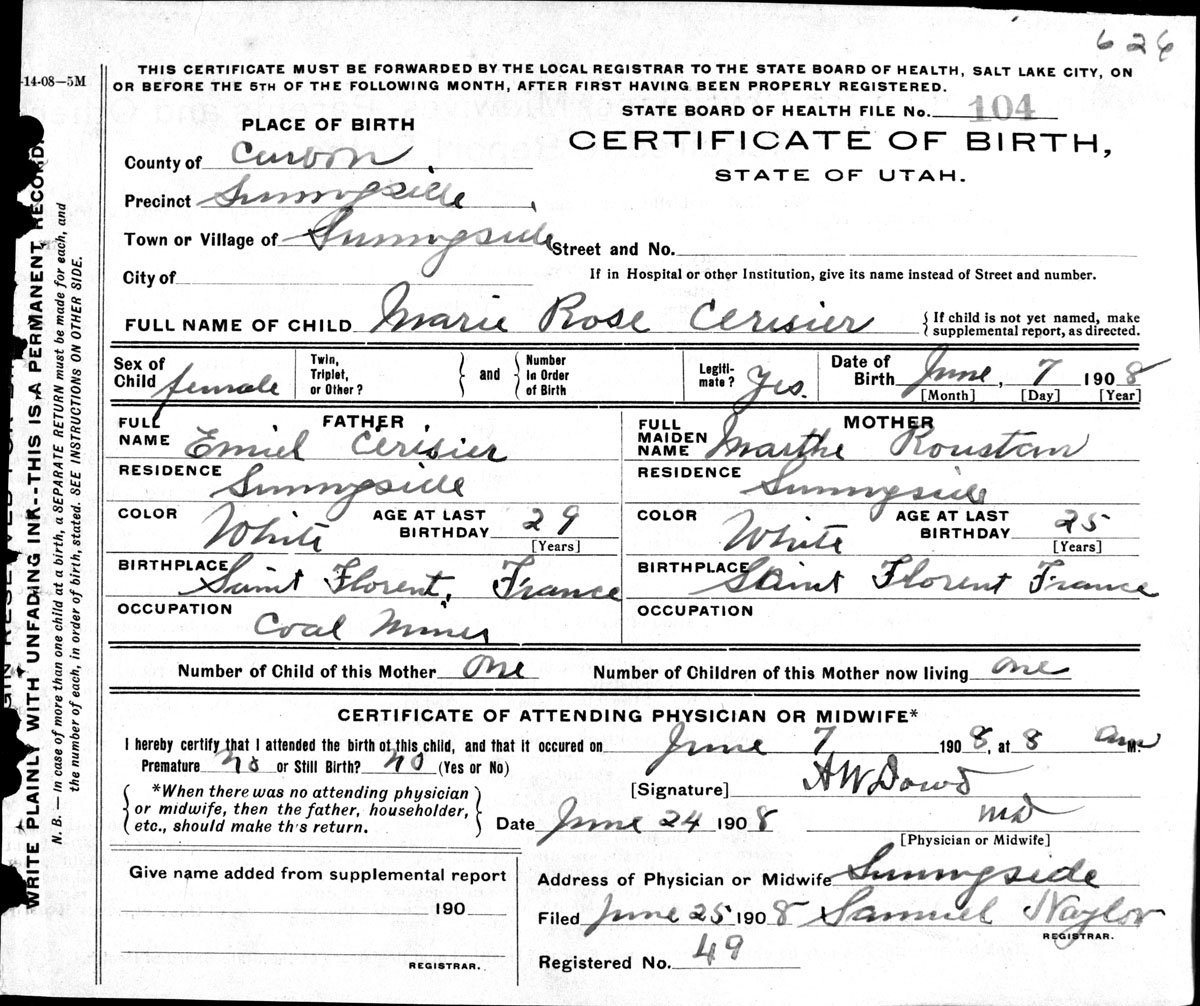 626
-14-08—5M
THIS CERTIFICATE MUST BE FORWARDED BY THE LOCAL REGISTRAR TO THE STATE BOARD OF HEALTH, SALT LAKE CITY, ON
OR BEFORE THE 5TH OF THE FOLLOWING MONTH, AFTER FIRST HAVING BEEN PROPERLY REGISTERED.
STATE BOARD OF HEALTH FILE No. 104
PLACE OF BIRTH
CERTIFICATE OF BIRTH,
STATE OF UTAH.
County of Carbon
Precinct Sunnyside
Town or Village of Sunnyside Street and No.
City of If in Hospital or other Institution, give its name instead of Street and number.
FULL NAME OF CHILD Marie Rose Cerisier { If child is not yet named, make
supplemental report, as directed.
Sex of Child female Twin, Triplet, or Other? } and { Number In Order of Birth Legiti-mate? Yes. Date of Birth June, 7 1908
[Month] [Day] [Year]
FATHER
FULL NAME Emiel Cerisier
RESIDENCE Sunnyside
COLOR White AGE AT LAST BIRTHDAY 29
[Years]
BIRTHPLACE Saint Florent, France
OCCUPATION Coal Miner
MOTHER
FULL MAIDEN NAME Marthe Roustan
RESIDENCE Sunnyside
COLOR White AGE AT LAST BIRTHDAY 25
[Years]
BIRTHPLACE Saint Florent France
OCCUPATION
Number of Child of this Mother one Number of Children of this Mother now living one
CERTIFICATE OF ATTENDING PHYSICIAN OR MIDWIFE*
I hereby certify that I attended the birth of this child, and that it occured on June 7 1908, at 8 am M.
Premature no or Still Birth? no (Yes or No)
[Signature] A W Dowd
*When there was no attending physician
or midwife, then the father, householder,
etc., should make th's return.
Date June 24 1908 MD
[Physician or Midwife]
Give name added from supplemental report
190
REGISTRAR.
Address of Physician or Midwife Sunnyside
Filed June 25 1908 Samuel Naylor
REGISTRAR.
Registered No. 49
WRITE PLAINLY WITH UNFADING INK--THIS IS A PERMANENT RECORD.
N. B. — In case of more than one child at a birth, a SEPARATE RETURN must be made for each, and
the number of each, in order of birth, stated. SEE INSTRUCTIONS ON OTHER SIDE.